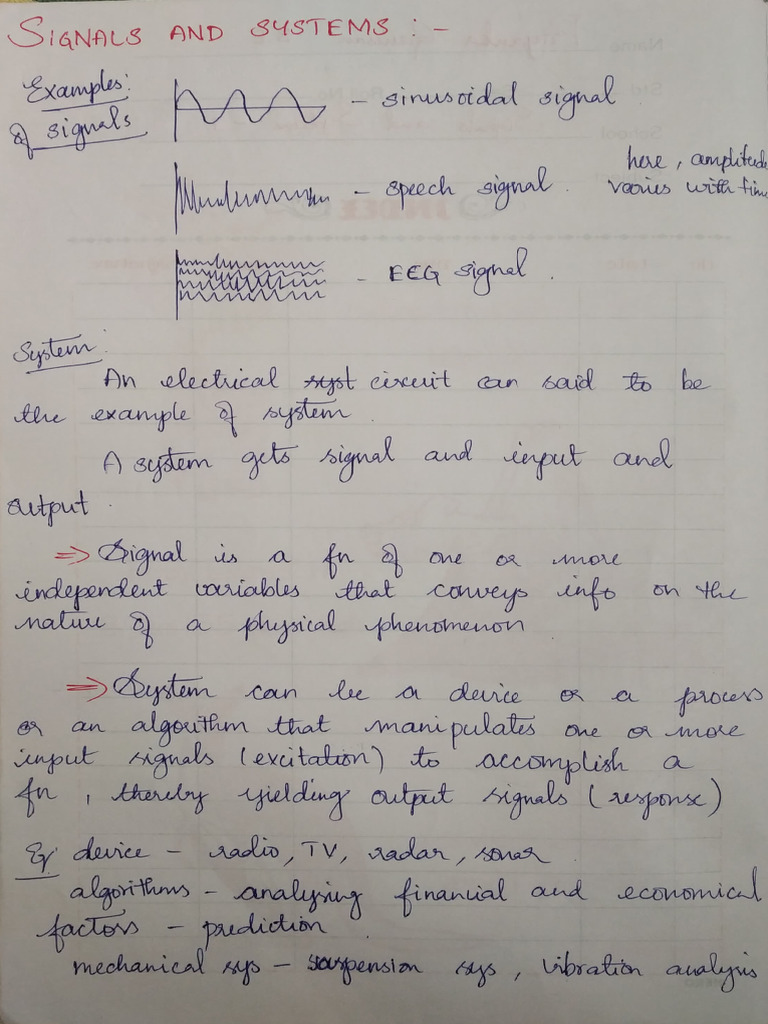 SIGNALS AND SYSTEMS :-
Examples:
of signals
- sinusoidal signal
- speech signal.
here, amplitude
varies with time
- EEG signal.
System:
An electrical syst circuit can said to be
the example of system
A system gets signal and input and
output.
⇒ Signal is a fn of one or more
independent variables that conveys info on the
nature of a physical phenomenon
⇒ System can be a device or a process
or an algorithm that manipulates one or more
input signals (excitation) to accomplish a
fn, thereby yielding output signals (response)
Eg: device - radio, TV, radar, sonar
algorithms - analysing financial and economical
factors - prediction.
mechanical sys - suspension sys, vibration analysis